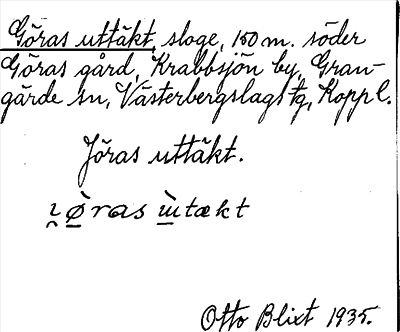 Göras uttäkt, sloge, 150 m. söder
Göras gård, Krabbsjön by, Gran-
gärde sn, Västerbergslags tg, Kopp l.
Jöras uttäkt.
Otto Blixt 1935.